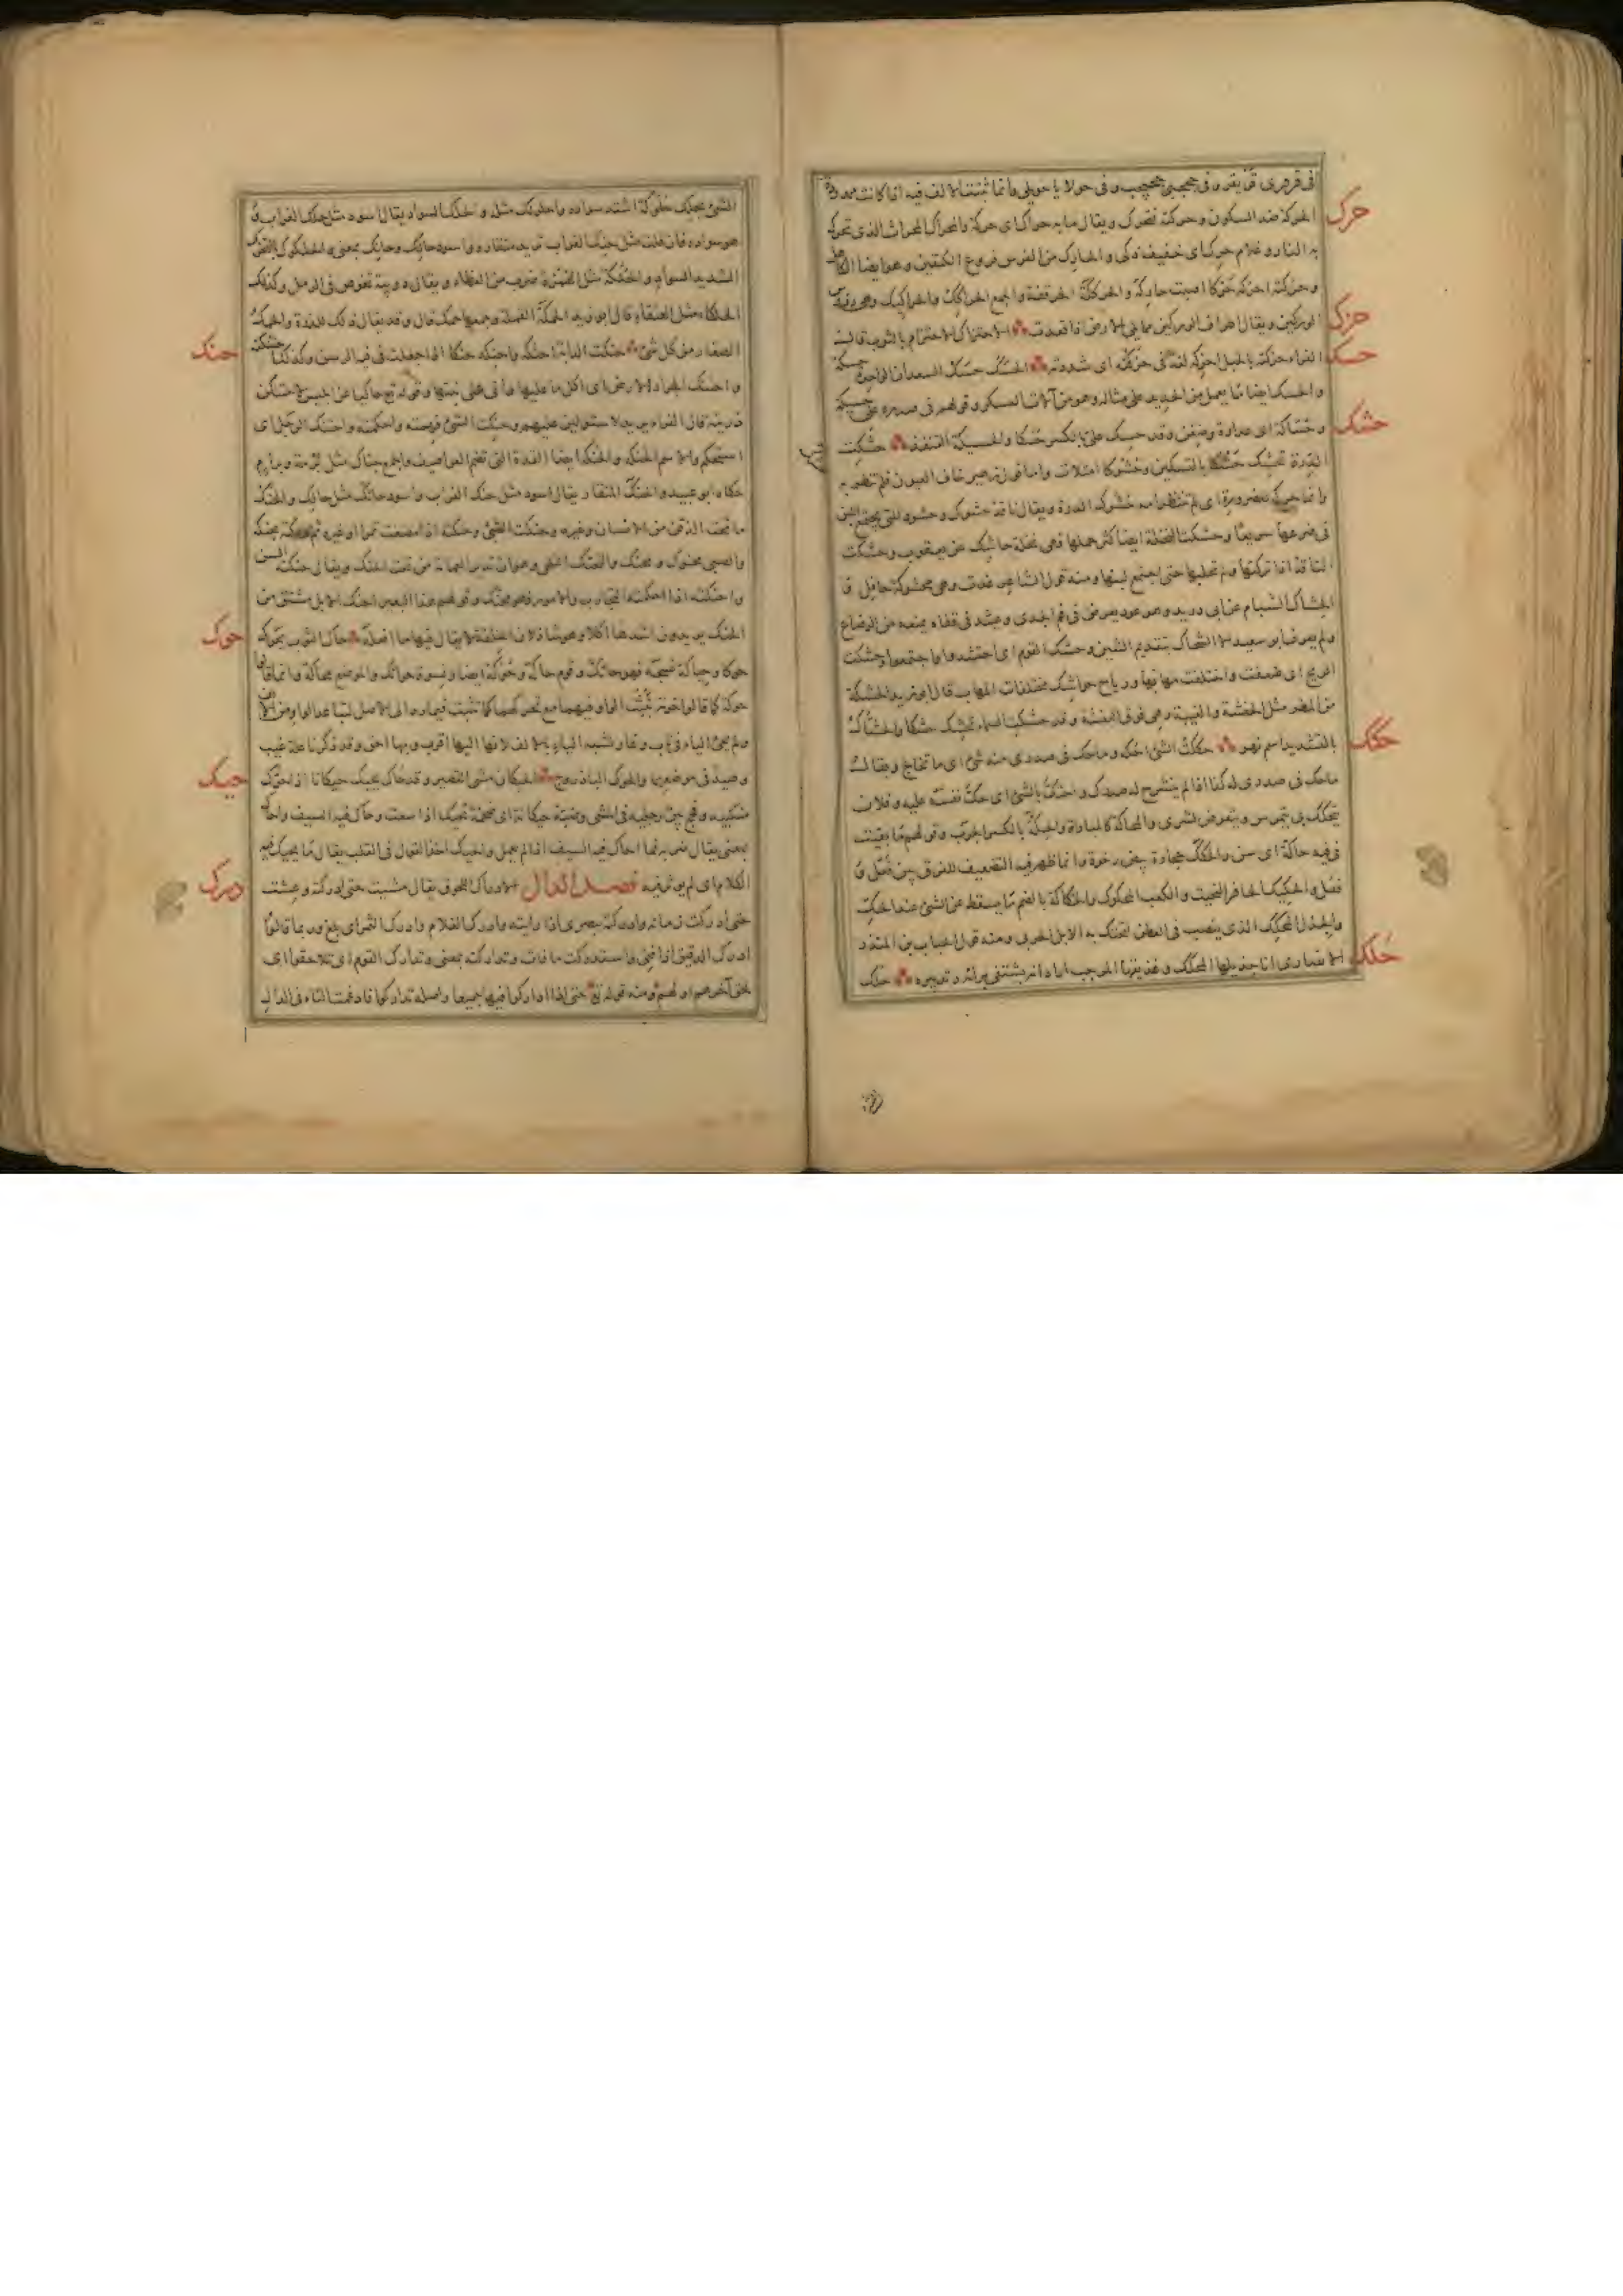 فى قرقرى قريقر وفى حججبى حجيجب وفى حولايا حويلى وانما ثبتت الالف فيه اذا كانت ممدودة
حرك
الحركة ضد السكون وحركته فتحرك ويقال ما به حراك اى حركة والمحراك المحراث الذى تحرك
به النار وغلام حرك اى خفيف ذكى والحارك من الفرس فروع الكتفين وهو ايضا الكاهل
وحركته احركه حركا اصبت حاركه والحركلة الحرقفة والجمع الحراكك والحراكيك وهى رؤس
الوركين ويقال اطراف الوركين مما يلى الارض اذا قعدت
حزك
الاحتزاك الاحتزام بالثوب قال
الفراء حزكته بالحبل احزكه لغة فى حزقته اى شددته
حسك
الحسك حسك السعدان الواحدة حسكة
والحسك ايضا ما يعمل من الحديد على مثاله وهو من آلات العسكر وقولهم فى صدره على حسيكة
وحساكة اى عداوة وضغن وقد حسك على بالكسر حسكا والحسيكة القنفذ
حشك
حشكت
الدرة تحشك حشكا بالتسكين وحشوكا امتلات واما قول زهير خاف العيون فلم تنظر به
وانما حركه لضرورة اى لم تنتظر امه حشوك الدرة ويقال ناقة حشوك وحشود للتى يجتمع اللبن
فى ضرعها سريعا وحشكت النخلة ايضا كثر حملها فهى نخلة حاشك عن يعقوب وحشكت
الناقة اذا تركتها ولم تحلبها حتى اجتمع لبنها ومنه قول الشاعر غدت وهى محشوكة حافل قا
الحشاك الشبام عن ابى دريد وهو عود يعرض فى فم الجدى ويشد فى قفاه يمنعه من الرضاع
ولم يعرف ابو سعيد الا الشحاك بتقديم الشين وحشك القوم اى احتشدوا واجتمعوا وحشكت
الريح اى ضعفت واختلفت مهابها ورياح حواشك مختلفات المهاب قال ابو زيد الحشكة
من المطر مثل الحفشة والغبية وهى فوق البغشة وقد حشكت السماء تحشك حشكا والحشاك
بالتشديد اسم نهر
حكك
حككت الشئ احكه وما حك فى صدرى منه شئ اى ما تخالج ويقال
ما حك فى صدرى كذا اذا لم ينشرح له صدرك واحتك بالشئ اى حك نفسه عليه وفلان
يتحكك بى يتمرس ويتعرض لشرى والمحاكة كالمباراة والحكة بالكسر الجرب وقولهم ما بقيت
فى فيه حاكة اى سن والحكك حجارة بيض رخوة وانما ظهر فيه التضعيف للفرق بين فعل و
فعل والحكيك الحافر النحيت والكعب المحكوك والحكاكة بالضم ما يسقط عن الشئ عند الحك
والجذل المحكك الذى ينصب فى العطن لتحتك به الابل الجربى ومنه قول الحباب بن المنذر
الانصارى انا جذيلها المحكك وعذيقها المرجب اراد انه يشتفى برائه وتدبيره
حلك
حلك
الشئ يحلك حلوكة اشتد سواده واحلولك مثله والحلك السواد يقال اسود مثل حلك الغراب و
هو سواده فان قلت مثل حنك الغراب تريد منقاره واسود حالك وحانك بمعنى والحلكوك بالتحريك
الشديد السواد والحلكة مثل الهمزة ضرب من العظاء ويقال دويبة تغوص فى الرمل وكذلك
الحلكاء مثل العنقاء قال ابو زيد الحمكة القملة وجمعها حمك قال وقد يقال ذلك للذرة والحمك
الصغار من كل شئ
حنك
حنكت الدابة احنكه واحنكه حنكا اذا جعلت فى فيه الرسن وكذلك احتنكته
واحتنك الجراد الارض اى اكل ما عليها واتى على نبتها وقوله تع حاكيا عن ابليس لاحتنكن
ذريته قال الفراء يريد لاستولين عليهم وحنكت الشئ فهمته واحكمته واحتنك الرجل اى
استحكم والاسم الحنكة والحنكة ايضا القدة التى تضم العراصيف والجمع حناك مثل برمة وبرام
حكاه ابو عبيد والحنك المنقار يقال اسود مثل حنك الغراب واسود حانك مثل حالك والحنك
ما تحت الذقن من الانسان وغيره وحنكت الصبى وحنكته اذا مضغت تمرا او غيره ثم دلكته بحنكه
والصبى محنوك ومحنك والتحنك التلحى وهو ان تدير العمامة من تحت الحنك ويقال حنكته السن
واحنكته اذا احكمته التجارب والامور فهو محنك وقولهم هذا البعير احنك الابل مشتق من
الحنك يريدون اشدها اكلا وهو شاذ لان الخلقة لا يقال فيها ما افعله
حوك
حاك الثوب يحوكه
حوكا وحياكة نسجه فهو حائك وقوم حاكة وحوكة ايضا ونسوة حوائك والموضع محاكة وانما قالوا
حوكة كما قالوا خونة
ولم يجئ الياء فى ناب وعار لشبه الياء بالالف لانها اليها اقرب وبها احق وقد ذكرنا علة غيب
وصيد فى موضعهما والحوك الباذروج
حيك
الحيكان مشى القصير وقد حاك يحيك حيكانا اذا حرك
منكبيه وفحج بين رجليه فى المشى وضبة حيكانة اى ضخمة تحيك اذا سعت وحاك فيه السيف واحاك
بمعنى يقال ضربه فما احاك فيه السيف اذا لم يعمل والحيك اخذ القول فى القلب يقال ما يحيك فيه
الكلام اى لم يوثر فيه
فصل الدال
درك
الادراك اللحوق يقال مشيت حتى ادركته وعشت
حتى ادركت زمانه وادركته ببصرى اذا رايته وادرك الغلام وادرك الثمر اى بلغ وربما قالوا
ادرك الدقيق اذا فنى واستدركت ما فات وتداركته بمعنى وتدارك القوم اى تلاحقوا اى
لحق آخرهم اولهم ومنه قوله تع حتى اذا اداركوا فيها جميعا واصله تداركوا فادغمت التاء فى الدال